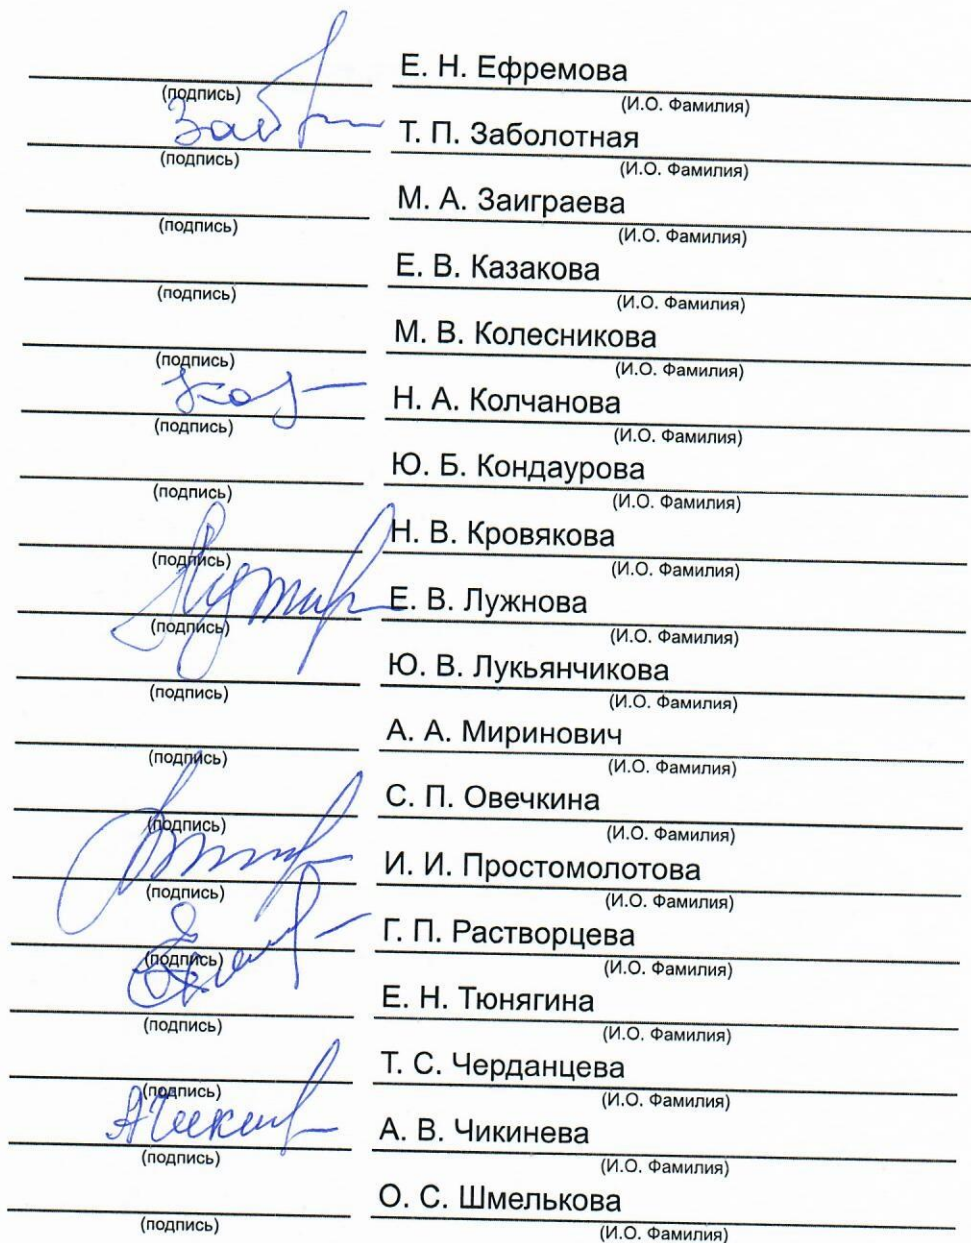 Е. Н. Ефремова
(подпись) (И.О. Фамилия)
Т. П. Заболотная
(подпись) (И.О. Фамилия)
М. А. Заиграева
(подпись) (И.О. Фамилия)
Е. В. Казакова
(подпись) (И.О. Фамилия)
М. В. Колесникова
(подпись) (И.О. Фамилия)
Н. А. Колчанова
(подпись) (И.О. Фамилия)
Ю. Б. Кондаурова
(подпись) (И.О. Фамилия)
Н. В. Кровякова
(подпись) (И.О. Фамилия)
Е. В. Лужнова
(подпись) (И.О. Фамилия)
Ю. В. Лукьянчикова
(подпись) (И.О. Фамилия)
А. А. Миринович
(подпись) (И.О. Фамилия)
С. П. Овечкина
(подпись) (И.О. Фамилия)
И. И. Простомолотова
(подпись) (И.О. Фамилия)
Г. П. Растворцева
(подпись) (И.О. Фамилия)
Е. Н. Тюнягина
(подпись) (И.О. Фамилия)
Т. С. Черданцева
(подпись) (И.О. Фамилия)
А. В. Чикинева
(подпись) (И.О. Фамилия)
О. С. Шмелькова
(подпись) (И.О. Фамилия)